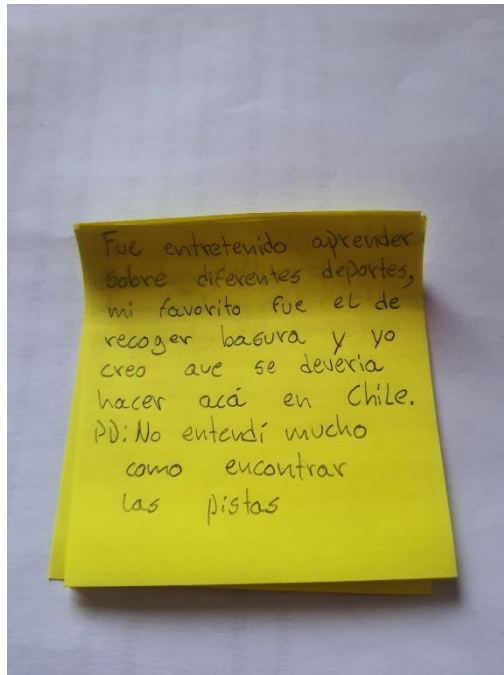 Fue entretenido aprender
sobre diferentes deportes,
mi favorito fue el de
recoger basura y yo
creo que se deveria
hacer acá en Chile.
PD: No entendí mucho
como encontrar
las pistas